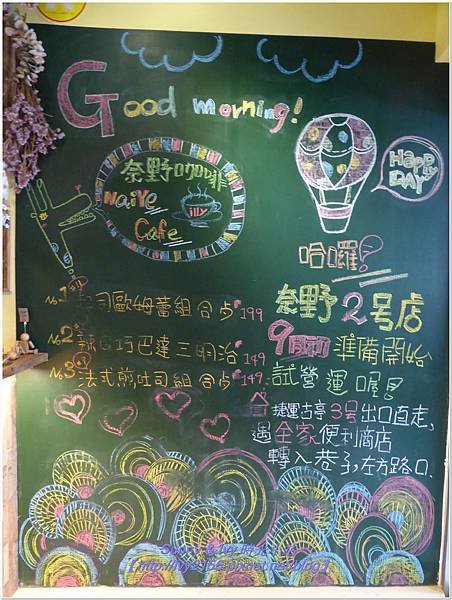 Good morning!
奈野咖啡
Naiye
illy
Cafe
Happy
DAY
哈囉!
No.1 起司歐姆蕾組合 $199
No.2 巧巴達三明治 149
No.3 法式煎吐司組合 149
奈野2号店
9月初 準備開始
試營運喔!
捷運古亭3号出口直走,
遇全家便利商店
轉入巷子,左方路口.